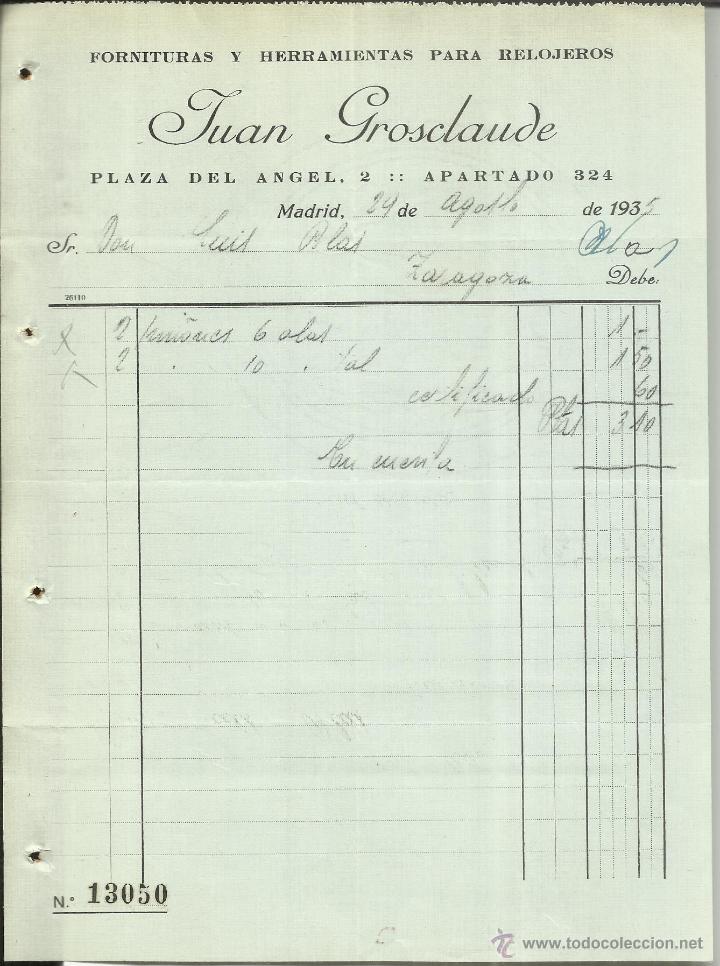 FORNITURAS Y HERRAMIENTAS PARA RELOJEROS
Juan Grosclaude
PLAZA DEL ANGEL, 2 :: APARTADO 324
Madrid, 29 de Agosto de 1935
Sr. Don Luis Blas
Zaragoza Debe:
26110
2 6 alas 1 -
2 " 10 " 1 50
certificado 60
Ptas 3 10
En cuenta
N.º 13050
www.todocoleccion.net